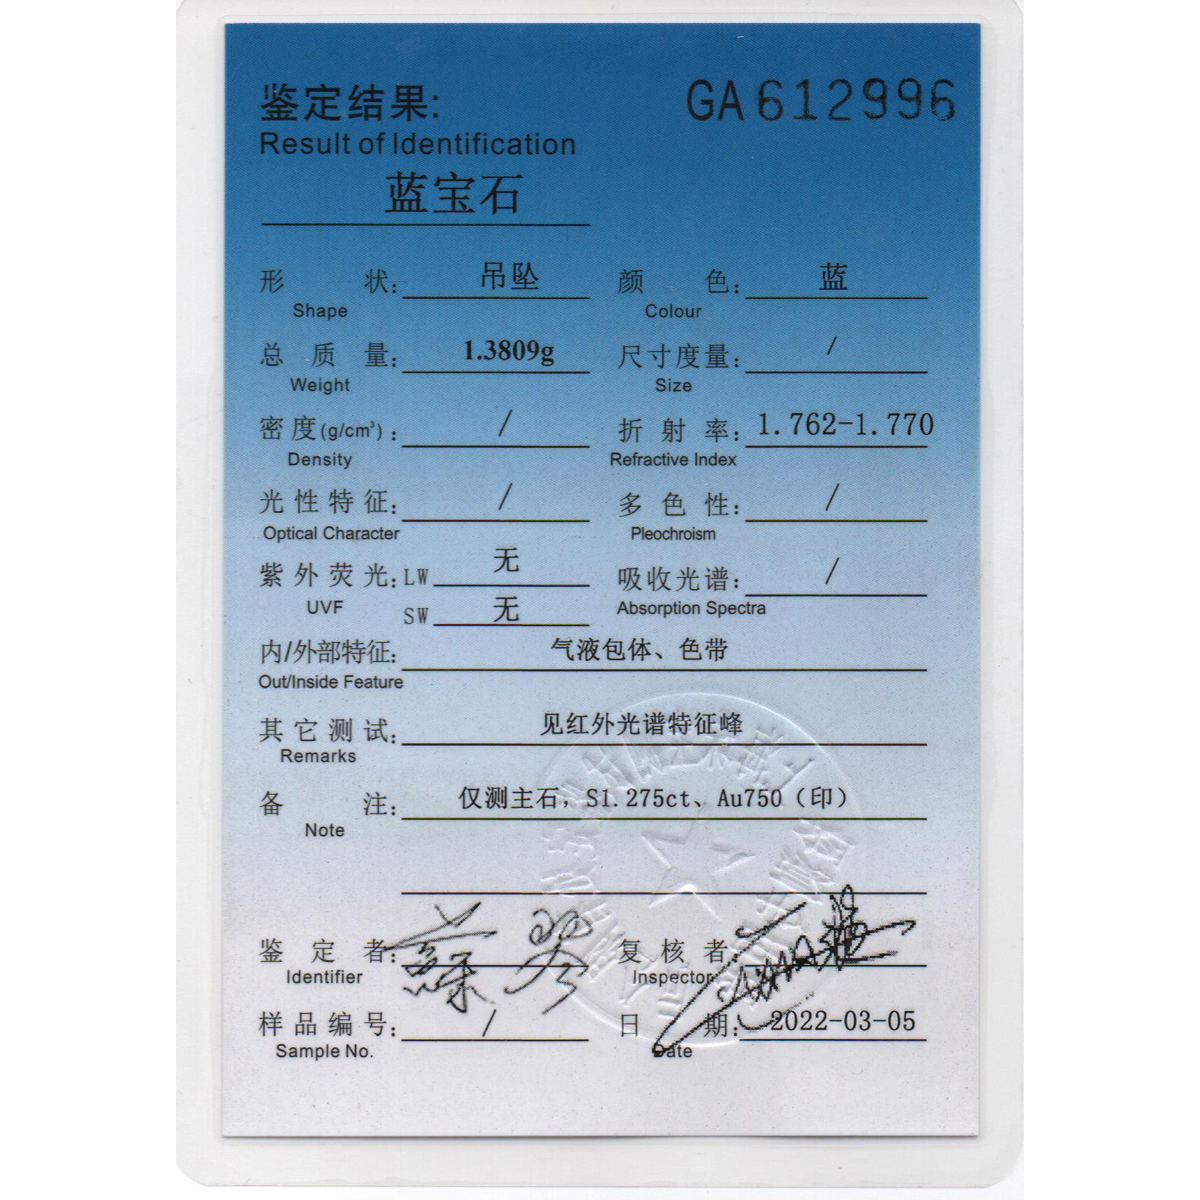 鉴定结果: GA612996
Result of Identification
蓝宝石
形状: 吊坠 颜色: 蓝
Shape Colour
总质量: 1.3809g 尺寸度量: /
Weight Size
密度(g/cm³): / 折射率: 1.762-1.770
Density Refractive Index
光性特征: / 多色性: /
Optical Character Pleochroism
紫外荧光: LW 无 吸收光谱: /
UVF SW 无 Absorption Spectra
内/外部特征: 气液包体、色带
Out/Inside Feature
其它测试: 见红外光谱特征峰
Remarks
备注: 仅测主石, S1.275ct、Au750（印）
Note
鉴定者: 复核者:
Identifier Inspector
样品编号: / 日期: 2022-03-05
Sample No. Date